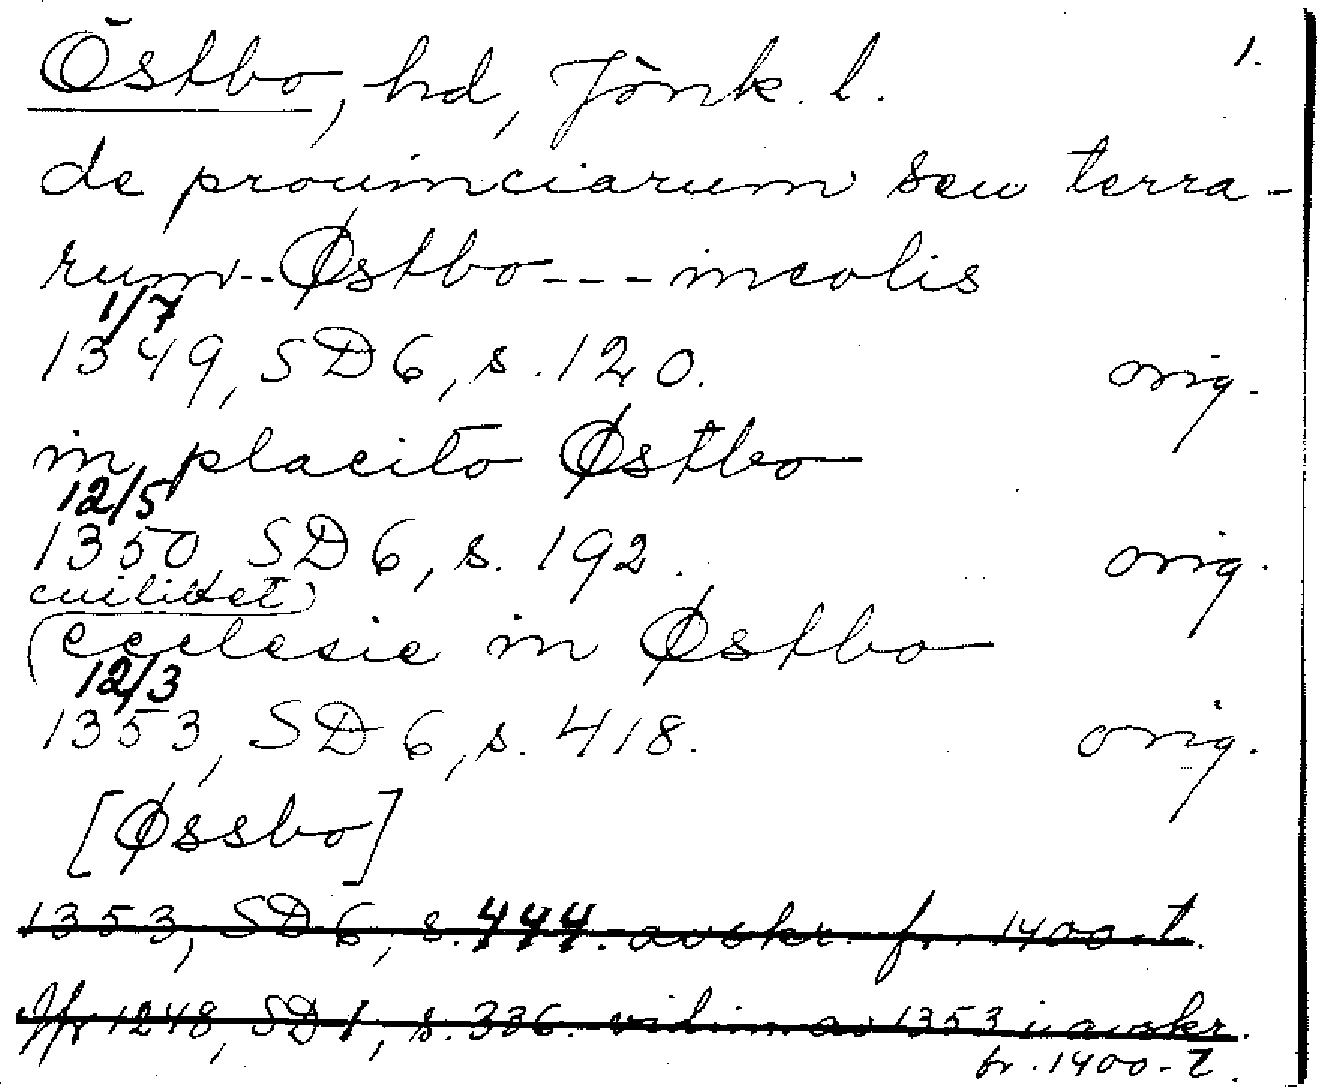 Östbo, hd, Jönk. l. 1.
de prouinciarum seu terra-
rum--Østbo---incolis
1/7
1349, SD 6, s. 120. orig.
in placito Østbo
12/5
1350, SD 6, s. 192. orig.
cuilibet
ecclesie in Østbo
12/3
1353, SD 6, s. 418. orig.
[Øssbo]
1353, SD 6, s. 444. avskr. fr. 1400-t.
Jfr 1248, SD 1, s. 336. vidim. av 1353 i avskr.
fr. 1400-t.